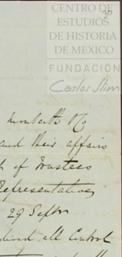 CENTRO DE
ESTUDIOS
DE HISTORIA
DE MEXICO
FUNDACIÓN
Carlos Slim
and their affairs
of Trustees
Representatives
29 Septr
all Control